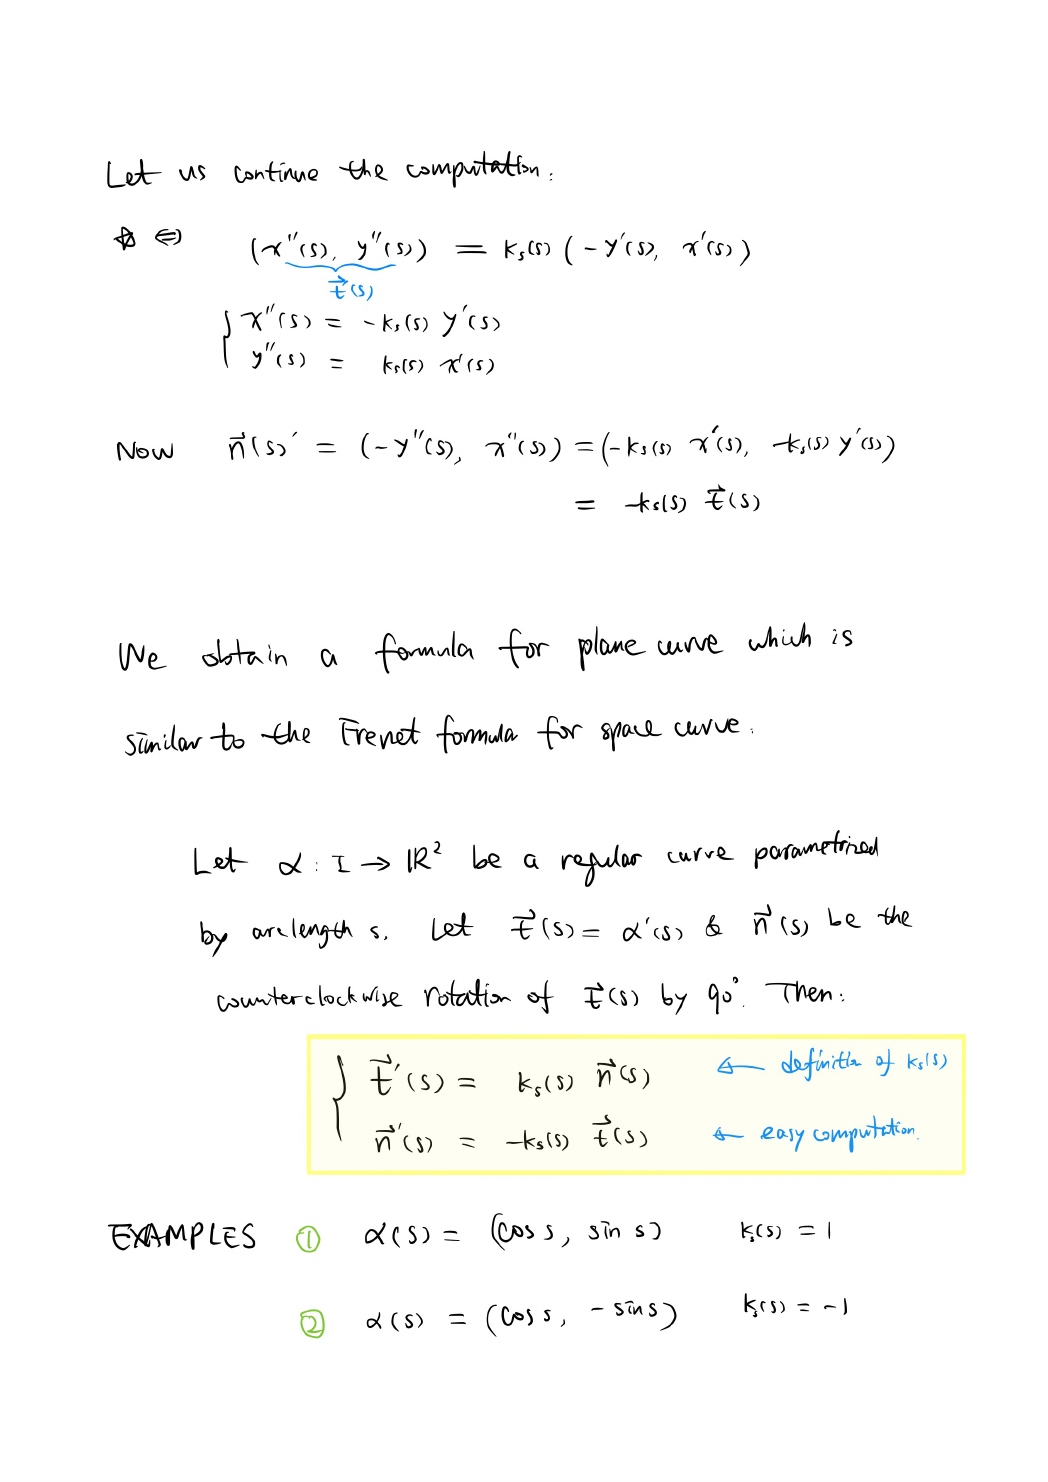 Let us continue the computation:
☆ ⇔ (x''(s), y''(s)) = kₛ(s) (-y'(s), x'(s))
t⃗(s)
{ x''(s) = -kₛ(s) y'(s)
y''(s) = kₛ(s) x'(s)
Now n⃗(s)' = (-y''(s), x''(s)) = (-kₛ(s) x'(s), -kₛ(s) y'(s))
= -kₛ(s) t⃗(s)
We obtain a formula for plane curve which is
similar to the Frenet formula for space curve.
Let α : I → ℝ² be a regular curve parametrized
by arclength s. Let t⃗(s) = α'(s) & n⃗(s) be the
counterclockwise rotation of t⃗(s) by 90°. Then:
{ t⃗'(s) = kₛ(s) n⃗(s) ← definition of kₛ(s)
n⃗'(s) = -kₛ(s) t⃗(s) ← easy computation.
EXAMPLES ① α(s) = (cos s, sin s) kₛ(s) = 1
② α(s) = (cos s, - sin s) kₛ(s) = -1